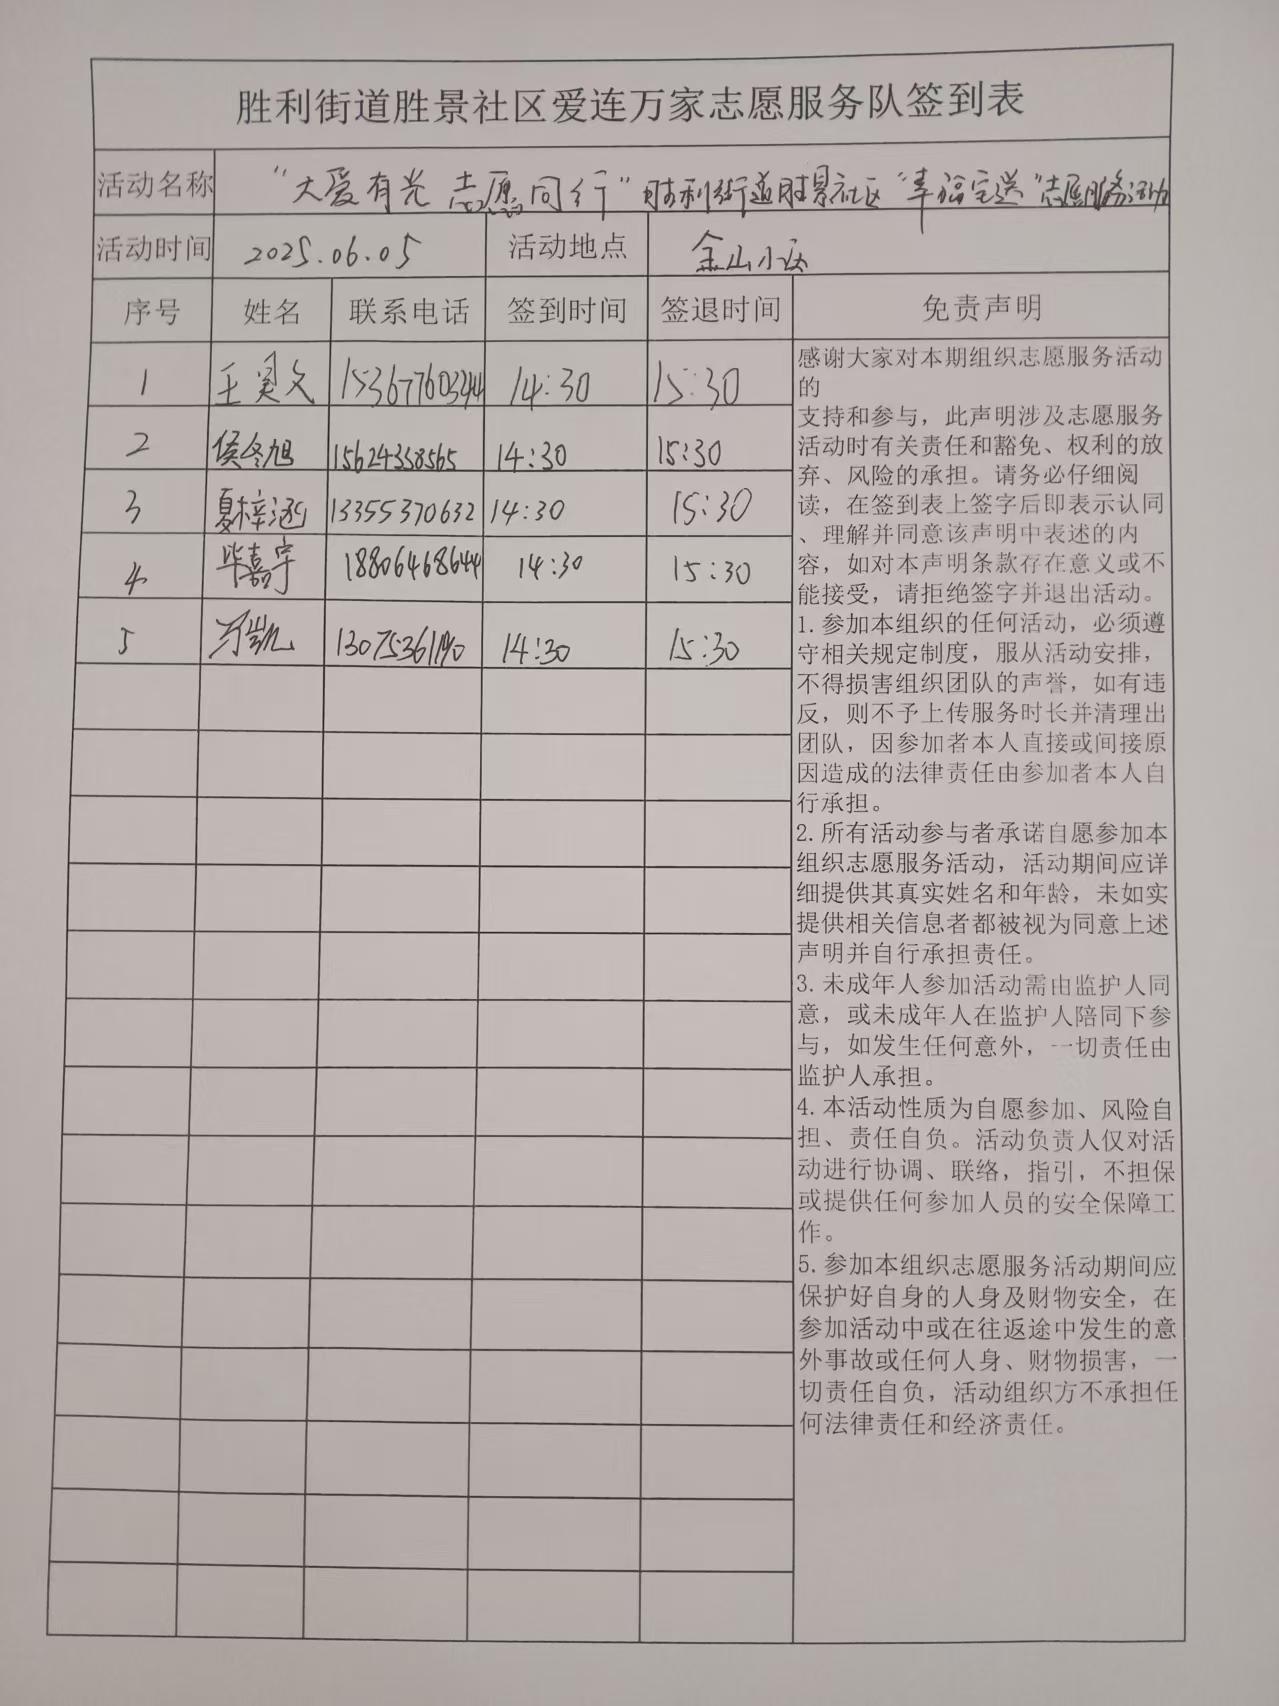 胜利街道胜景社区爱连万家志愿服务队签到表
活动名称 “大爱有光 志愿同行”胜利街道胜景社区“幸福宅送”志愿服务活动
活动时间 2025.06.05 活动地点 金山小区
序号 姓名 联系电话 签到时间 签退时间 免责声明
1 王昊文 15367760344 14:30 15:30
2 侯冬旭 15624338565 14:30 15:30
3 夏梓涵 13355370632 14:30 15:30
4 毕嘉宇 18806468644 14:30 15:30
5 万凯 13075361190 14:30 15:30
感谢大家对本期组织志愿服务活动
的
支持和参与，此声明涉及志愿服务
活动时有关责任和豁免、权利的放
弃、风险的承担。请务必仔细阅
读，在签到表上签字后即表示认同
、理解并同意该声明中表述的内
容，如对本声明条款存在意义或不
能接受，请拒绝签字并退出活动。
1.参加本组织的任何活动，必须遵
守相关规定制度，服从活动安排，
不得损害组织团队的声誉，如有违
反，则不予上传服务时长并清理出
团队，因参加者本人直接或间接原
因造成的法律责任由参加者本人自
行承担。
2.所有活动参与者承诺自愿参加本
组织志愿服务活动，活动期间应详
细提供其真实姓名和年龄，未如实
提供相关信息者都被视为同意上述
声明并自行承担责任。
3.未成年人参加活动需由监护人同
意，或未成年人在监护人陪同下参
与，如发生任何意外，一切责任由
监护人承担。
4.本活动性质为自愿参加、风险自
担、责任自负。活动负责人仅对活
动进行协调、联络，指引，不担保
或提供任何参加人员的安全保障工
作。
5.参加本组织志愿服务活动期间应
保护好自身的人身及财物安全，在
参加活动中或在往返途中发生的意
外事故或任何人身、财物损害，一
切责任自负，活动组织方不承担任
何法律责任和经济责任。